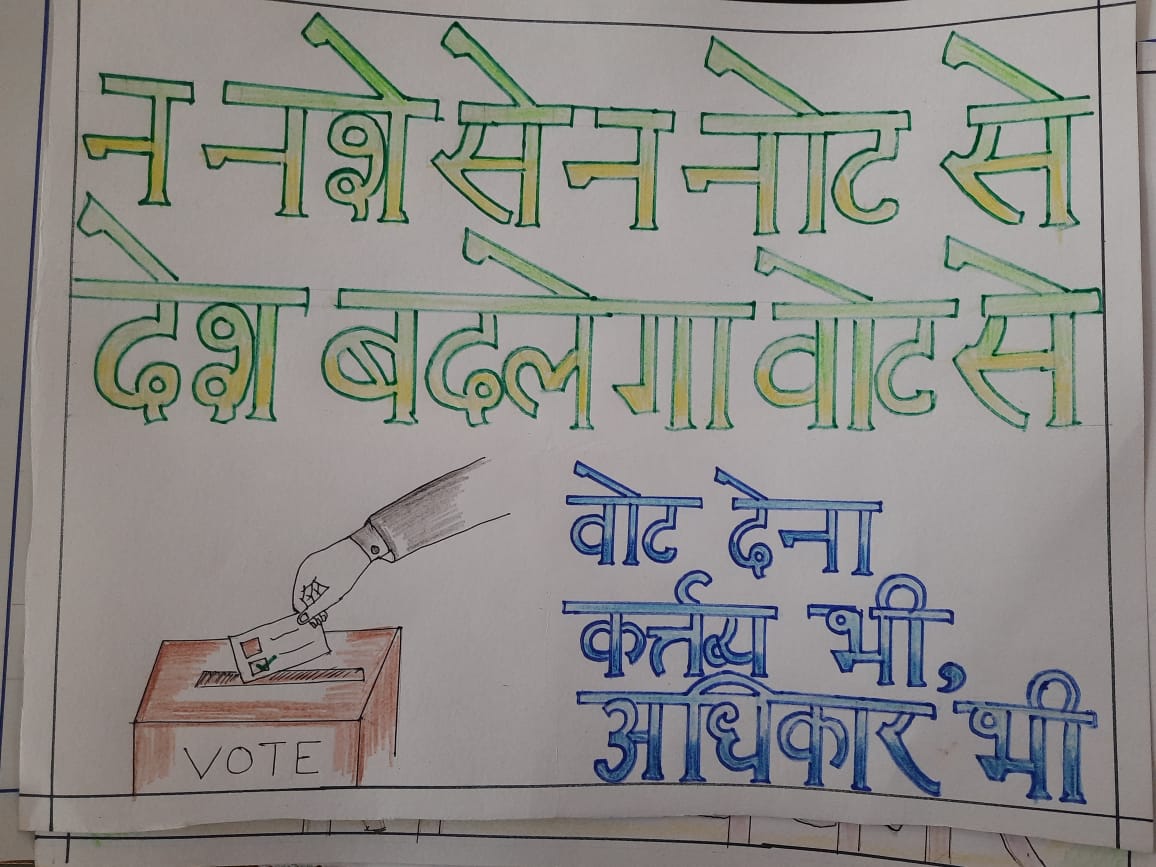 न नशे से न नोट से
देश बदलेगा वोट से
वोट देना
कर्त्तव्य भी,
अधिकार भी
VOTE